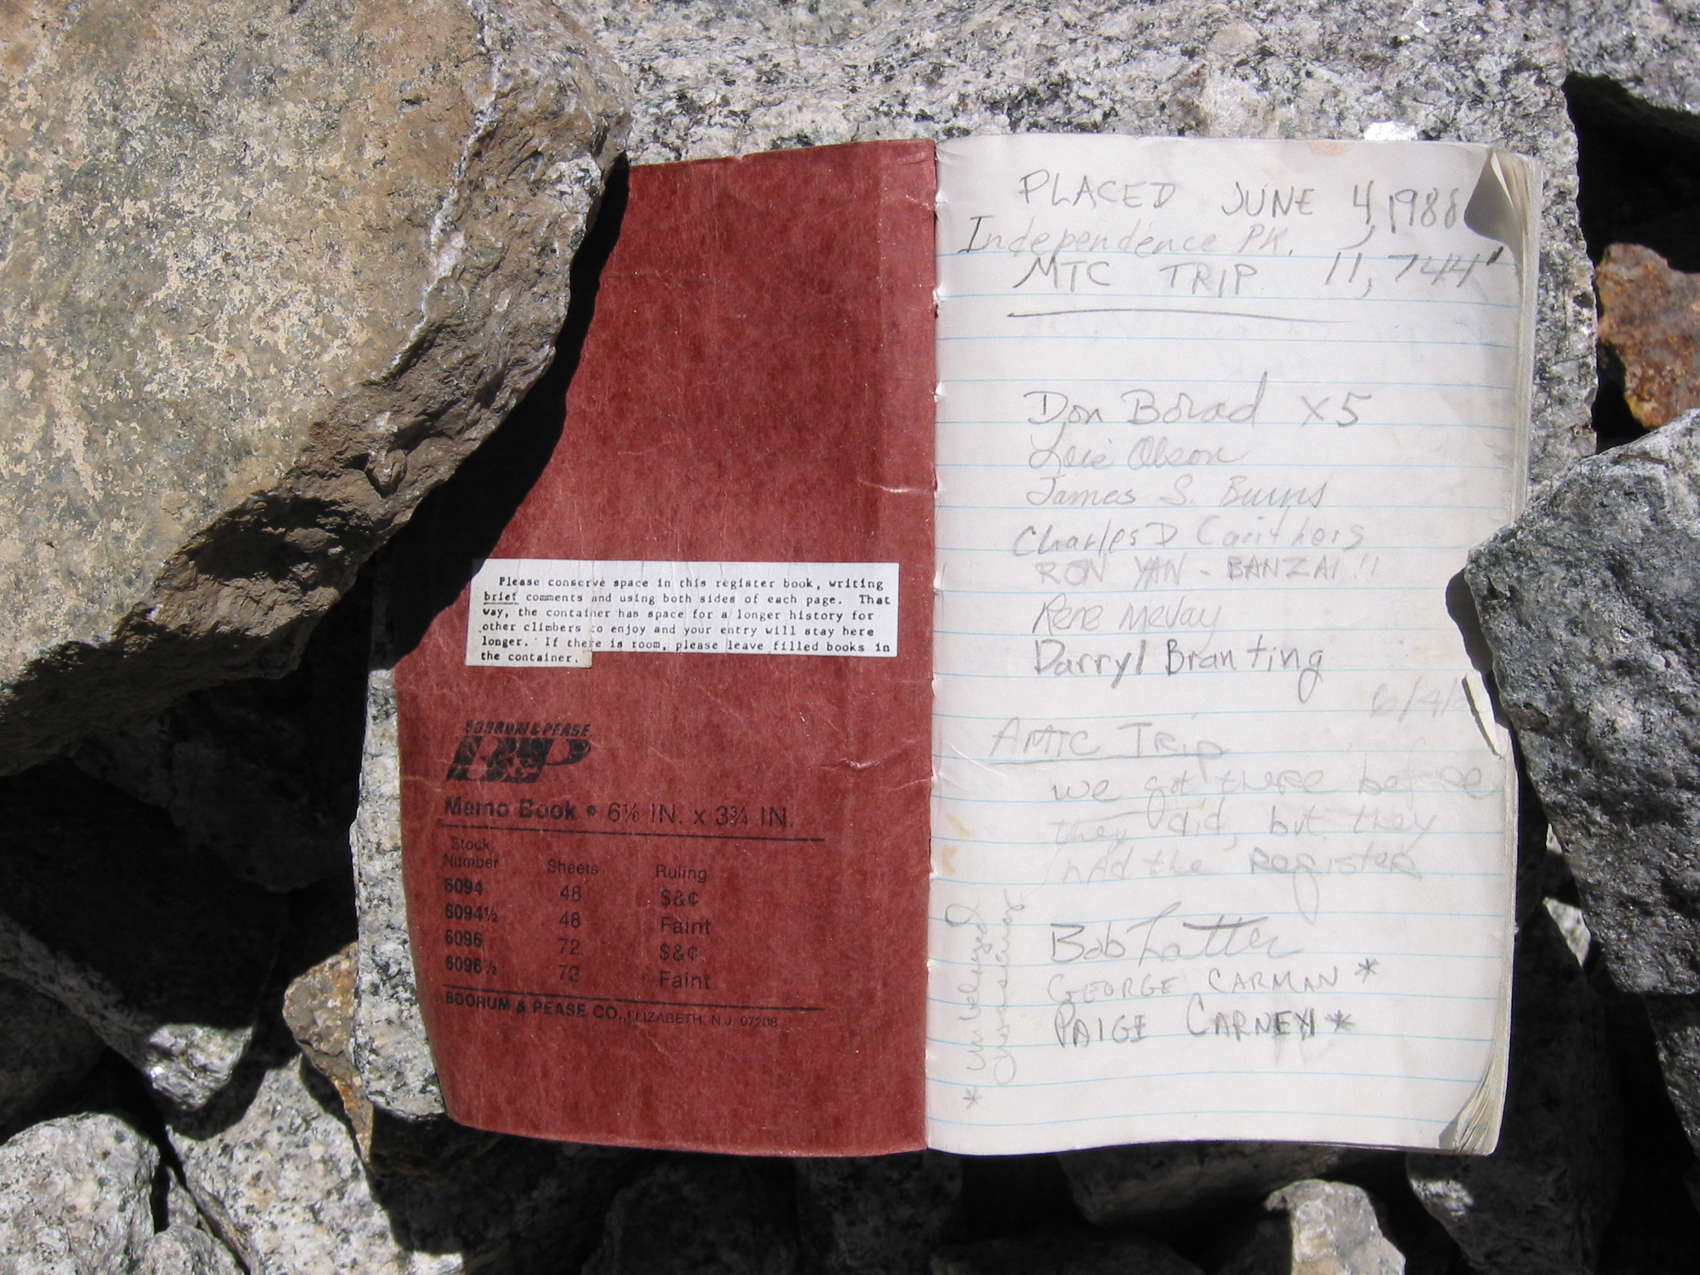 Please conserve space in this register book, writing
brief comments and using both sides of each page. That
way, the container has space for a longer history for
other climbers to enjoy and your entry will stay here
longer. If there is room, please leave filled books in
the container.
BOORUM & PEASE
B&P
Memo Book • 6⅛ IN. x 3¾ IN.
Stock Number Sheets Ruling
6094 48 $&¢
6094½ 48 Faint
6096 72 $&¢
6096½ 72 Faint
BOORUM & PEASE CO., ELIZABETH, N J 07208
PLACED JUNE 4, 1988
Independence PK.
MTC TRIP 11,744'
Don Borad X5
James S. Burns
Charles D Carithers
RON YAN - BANZAI !!
Rene McVay
Darryl Branting
6/4/
AMTC Trip
we got there before
they did, but they
had the register
Bob Latter
GEORGE CARMAN *
PAIGE CARNEY *